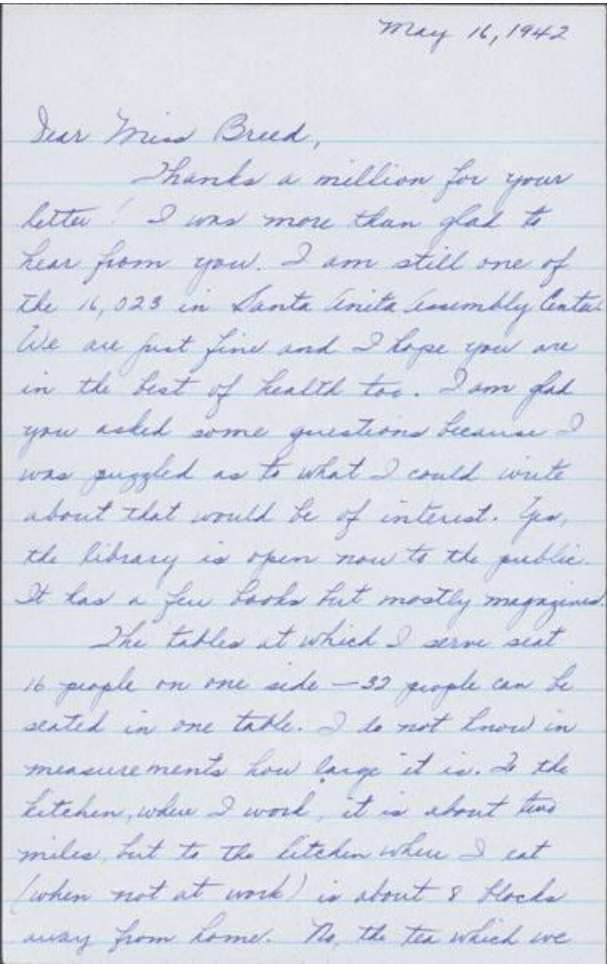 May 16, 1942
Dear Miss Breed,
Thanks a million for your
letter! I was more than glad to
hear from you. I am still one of
the 16,023 in Santa Anita Assembly Center.
We are just fine and I hope you are
in the best of health too. I am glad
you asked some questions because I
was puzzled as to what I could write
about that would be of interest. Yes,
the library is open now to the public.
It has a few books but mostly magazines.
The tables at which I serve seat
16 people on one side — 32 people can be
seated in one table. I do not know in
measurements how large it is. To the
kitchen, where I work, it is about two
miles, but to the kitchen where I eat
(when not at work) is about 8 blocks
away from home. No, the tea which we